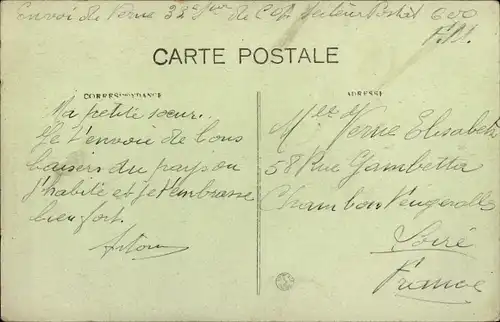 Envoi de Verne 32e de C.O.A. Secteur Postal 600
CARTE POSTALE
CORRESPONDANCE
ADRESSE
Ma petite sœur.
Je t'envoie de bons
baisers du pays ou
j'habite et je t'embrasse
bien fort.
Mlle Verne Elisabeth
58 Rue Gambetta
Chambon Feugerolles
Loire
France